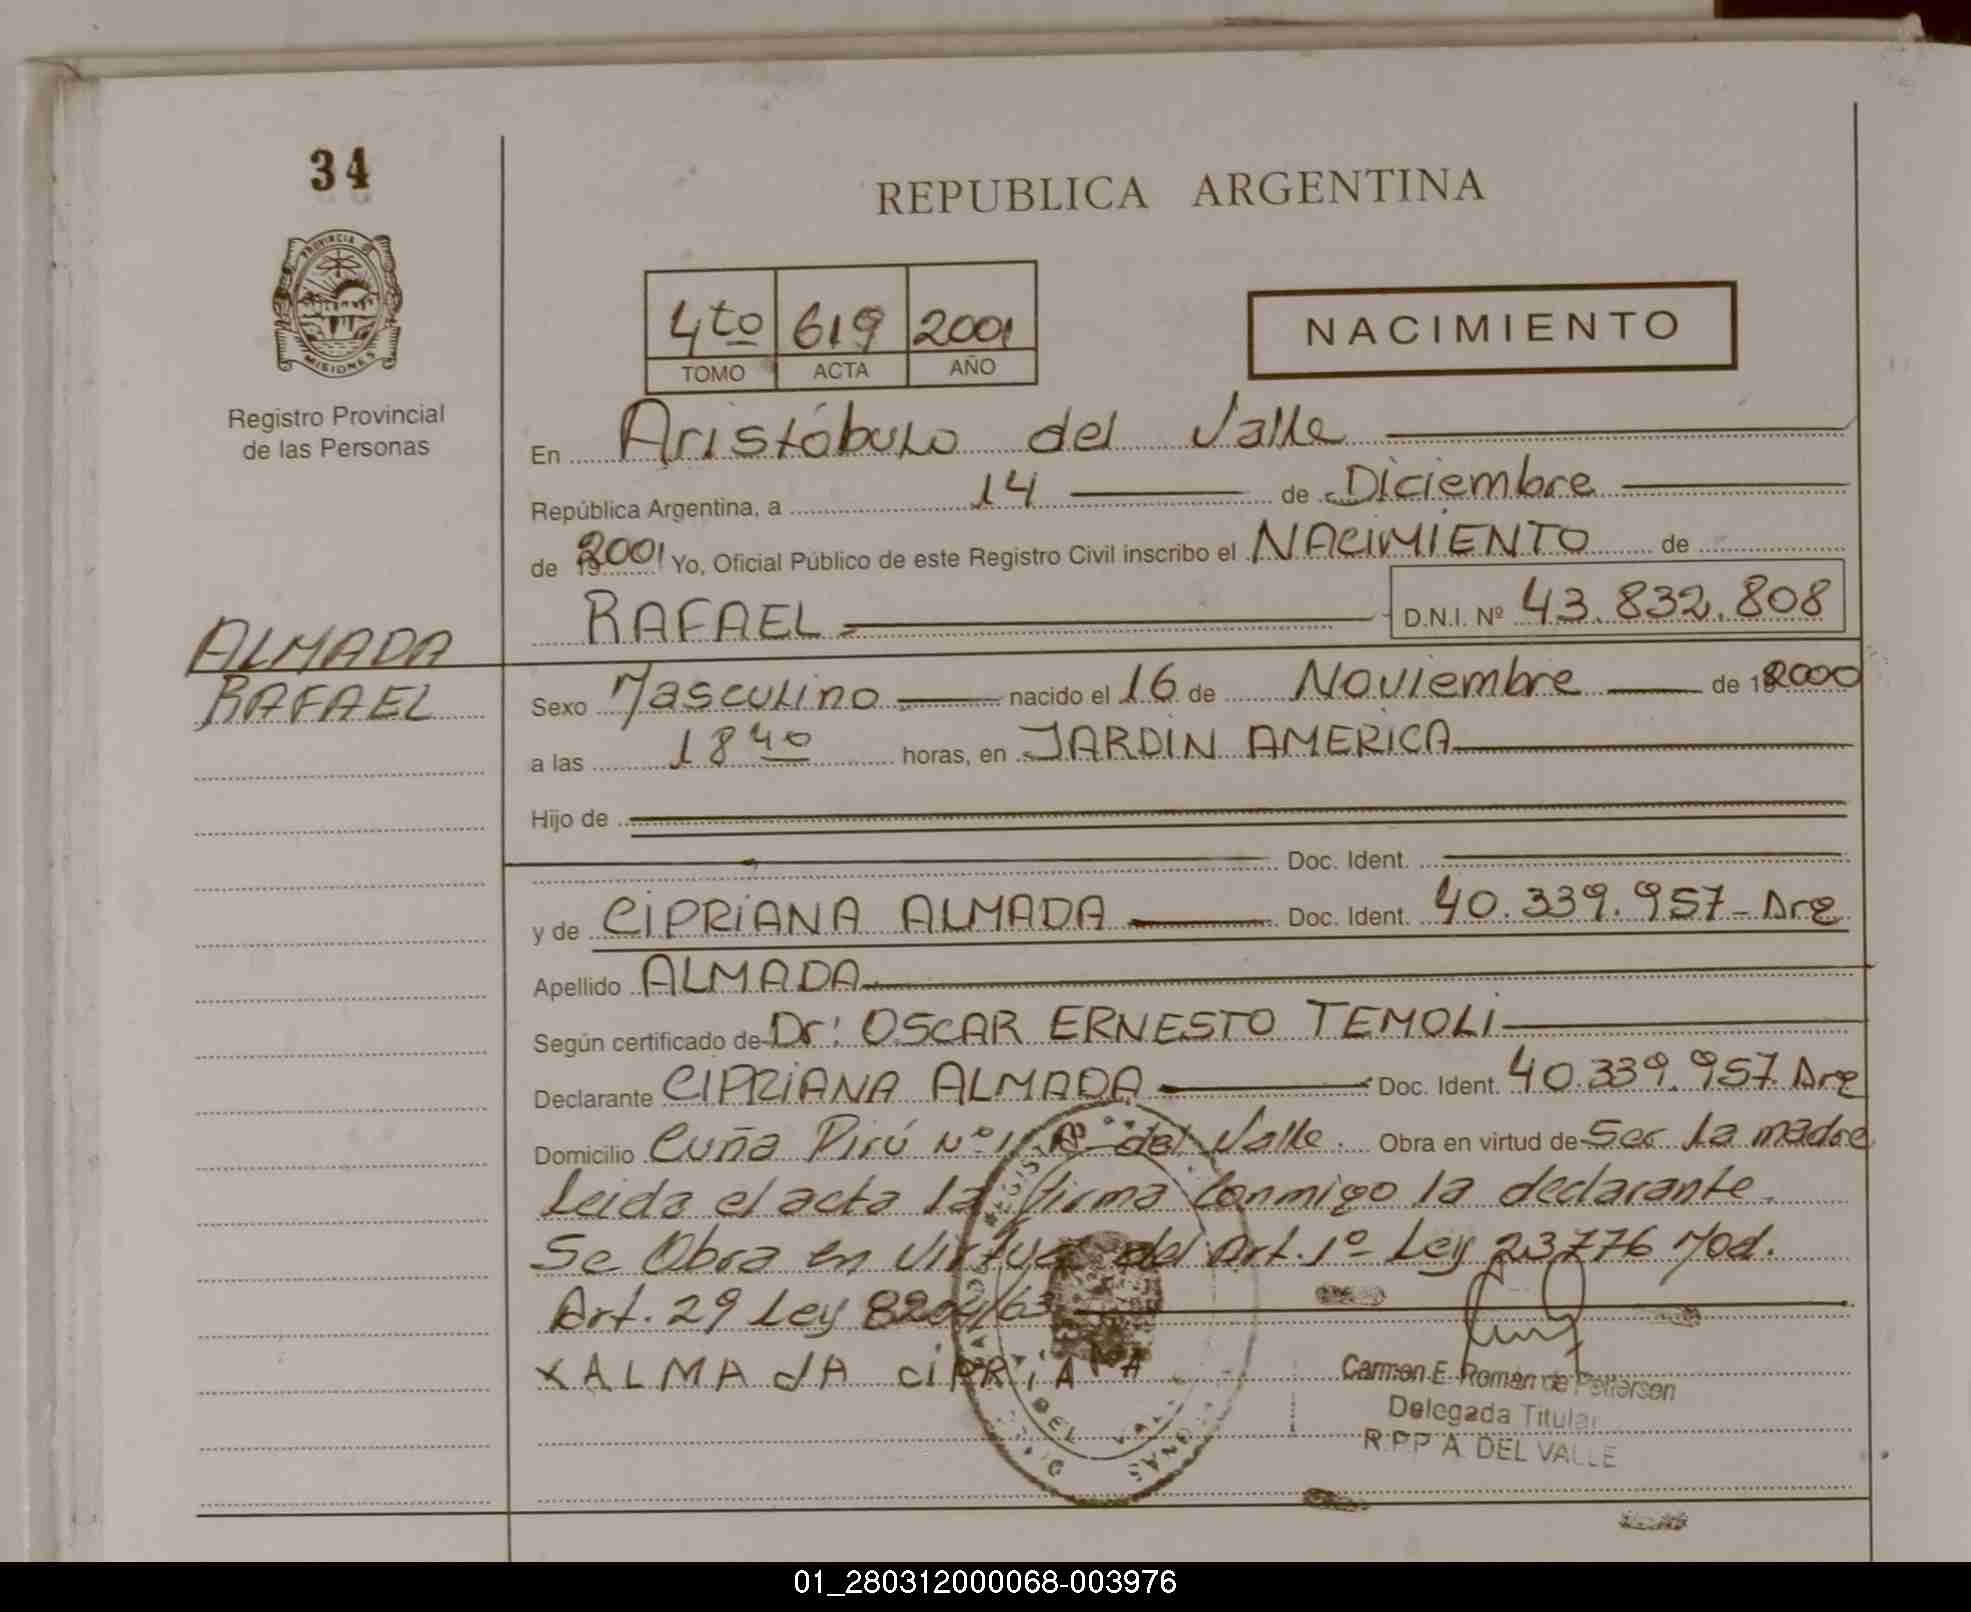 34
REPUBLICA ARGENTINA
PROVINCIA DE MISIONES
4to 619 2001
TOMO ACTA AÑO
NACIMIENTO
Registro Provincial
de las Personas
En Aristóbulo del Valle
República Argentina, a 14 de Diciembre
de 2001 Yo, Oficial Público de este Registro Civil inscribo el NACIMIENTO de
RAFAEL D.N.I. Nº 43.832.808
ALMADA
RAFAEL
Sexo Masculino nacido el 16 de Noviembre de 2000
a las 18 40 horas, en JARDIN AMERICA
Hijo de
Doc. Ident.
y de CIPRIANA ALMADA Doc. Ident. 40.339.957- Arg
Apellido ALMADA
Según certificado de Dr: OSCAR ERNESTO TEMOLI
Declarante CIPRIANA ALMADA Doc. Ident. 40.339.957 Arg
Domicilio Cuña Pirú Nº 1 del Valle. Obra en virtud de Ser la madre
Leida el acta la firma Conmigo la declarante.
Se Obra en virtud del Art. 1º Ley 23776 Mod.
Art. 29 Ley 8204/63
x ALMAdA CiPRiANA
Carmen E. Roman de Pettersen
Delegada Titular
R.P.P A. DEL VALLE
01_280312000068-003976